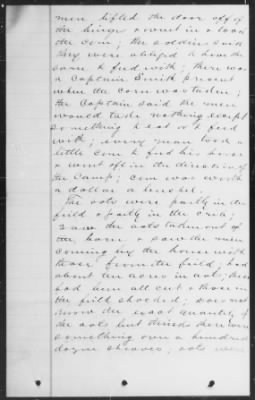 men lifted the door off of
the hinges & went in & took
the corn; the soldiers said
they were obliged to have the
corn to feed with; there was
a Captain Smith present
when the corn was taken;
the Captain said the men
would take nothing except
something to eat or to feed
with; every man took a
little corn to feed his horse
& went off in the direction of
the Camp; corn was worth
a dollar a bushel.
The oats were partly in the
field & partly in the crib;
I saw the oats taken out of
the barn & saw the men
coming by the house with
those from the field; had
about ten acres in oats; these
had been all cut & those in
the field shocked; does not
know the exact quantity of
the oats but thinks there were
something over a hundred
dozen sheaves; oats were